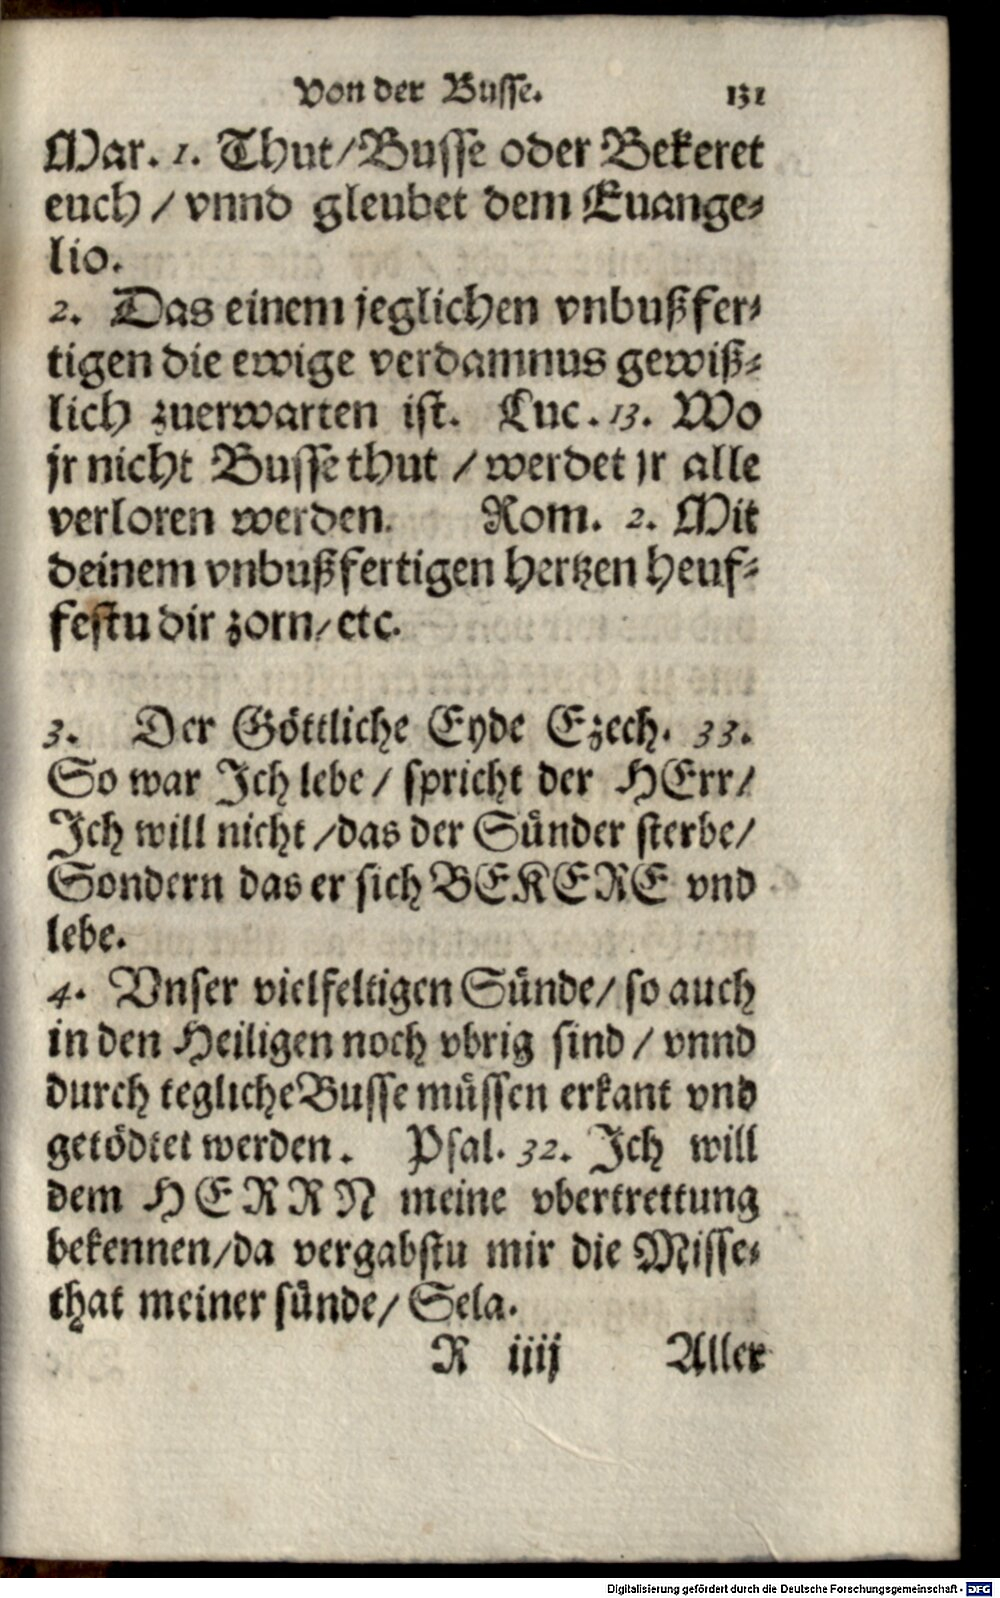 Von der Busse. 131
Mar. 1. Thut/Busse oder Bekeret
euch / vnnd gleubet dem Euange⸗
lio.
2. Das einem jeglichen vnbußfer⸗
tigen die ewige verdamnus gewiß⸗
lich zuerwarten ist. Luc. 13. Wo
jr nicht Busse thut / werdet jr alle
verloren werden. Rom. 2. Mit
deinem vnbußfertigen hertzen heuf⸗
festu dir zorn/etc.
3. Der Göttliche Eyde Ezech. 33.
So war Ich lebe / spricht der HErr/
Ich will nicht /das der Sünder sterbe/
Sondern das er sich BEKERE vnd
lebe.
4. Vnser vielfeltigen Sünde/ so auch
in den Heiligen noch vbrig sind / vnnd
durch tegliche Busse müssen erkant vnd
getödtet werden. Psal. 32. Ich will
dem HERRN meine vbertrettung
bekennen/da vergabstu mir die Misse⸗
that meiner sünde/ Sela.
R iiij Aller
Digitalisierung gefördert durch die Deutsche Forschungsgemeinschaft - DFG